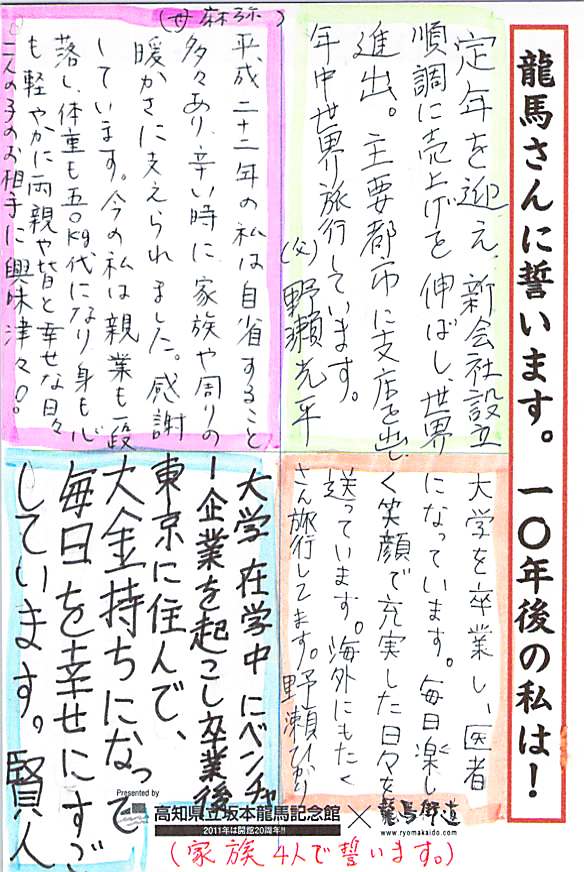 龍馬さんに誓います。一〇年後の私は!
定年を迎え、新会社設立
順調に売上げを伸ばし、世界
進出。主要都市に支店を出し
年中世界旅行しています。
(父)野瀬光平
大学を卒業し、医者
になっています。毎日楽し
く笑顔で充実した日々を
送っています。海外にもたく
さん旅行してます。野瀬ひかり
(母麻弥)
平成二十二年の私は自省すること
多々あり、辛い時に家族や周りの
暖かさに支えられました。感謝
しています。今の私は親業も一段
落し、体重も五〇kg代になり身も心
も軽やかに両親や皆と幸せな日々
二人の子のお相手に興味津々。
大学在学中にベンチャ
ー企業を起こし卒業後
東京に住んで、
大金持ちになって
毎日を幸せにすご
しています。賢人
Presented by
高知県立坂本龍馬記念館
2011年は開館20周年!!
×
龍馬街道
www.ryomakaido.com
(家族4人で誓います。)